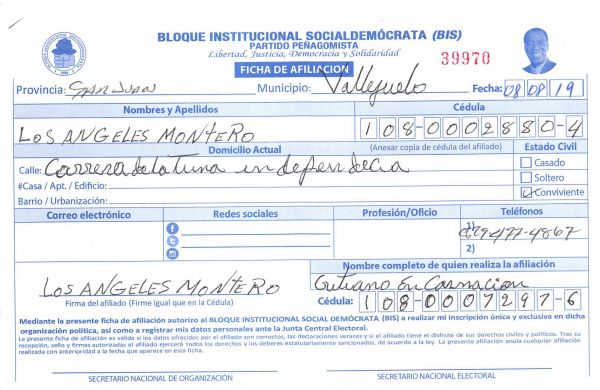 BLOQUE INSTITUCIONAL SOCIALDEMÓCRATA (BIS)
PARTIDO PEÑAGOMISTA
Libertad, Justicia, Democracia y Solidaridad
39970
FICHA DE AFILIACION
Provincia: San Juan Municipio: Vallejuelo Fecha: 08 08 19
Nombres y Apellidos Cédula
LOS ANGELES MONTERO 108-0002880-4
Domicilio Actual (Anexar copia de cédula del afiliado) Estado Civil
Calle: Carrera de la Tuna independecia
Casado
#Casa / Apt. / Edificio: Soltero
Barrio / Urbanización: Conviviente
Correo electrónico Redes sociales Profesión/Oficio Teléfonos
1) 829477-4867
2)
Nombre completo de quien realiza la afiliación
LOS ANGELES MONTERO Encarnacion
Firma del afiliado (Firme igual que en la Cédula) Cédula: 108-0007297-6
Mediante la presente ficha de afiliación autorizo al BLOQUE INSTITUCIONAL SOCIAL DEMÓCRATA (BIS) a realizar mi inscripción única y exclusiva en dicha
organización política, así como a registrar mis datos personales ante la Junta Central Electoral.
La presente ficha de afiliación es válida si los datos ofrecidos por el afiliado son correctos, las declaraciones veraces y si el afiliado tiene el disfrute de sus derechos civiles y políticos. Tras su
recepción, sello y firmas autorizadas el afiliado ejercerá todos los derechos y los deberes estatutariamente sancionados, de acuerdo a la ley. La presente afiliación anula cualquier afiliación
realizada con anterioridad a la fecha que aparece en esta ficha.
SECRETARIO NACIONAL DE ORGANIZACIÓN SECRETARIO NACIONAL ELECTORAL